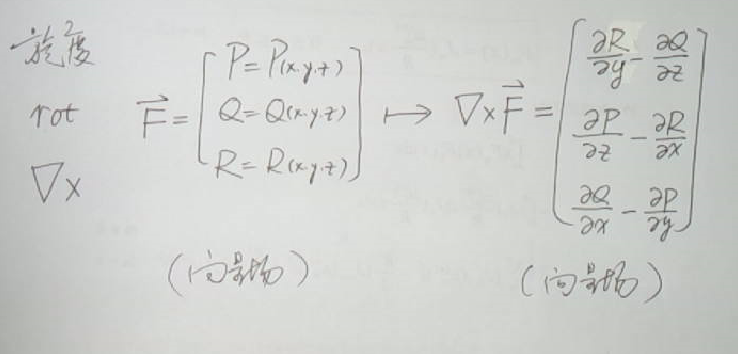 旋度
rot
∇×
F⃗ = [P = P(x.y.z) Q = Q(x.y.z) R = R(x.y.z)] ↦ ∇×F⃗ = [∂R/∂y - ∂Q/∂z ∂P/∂z - ∂R/∂x ∂Q/∂x - ∂P/∂y]
(向量场) (向量场)